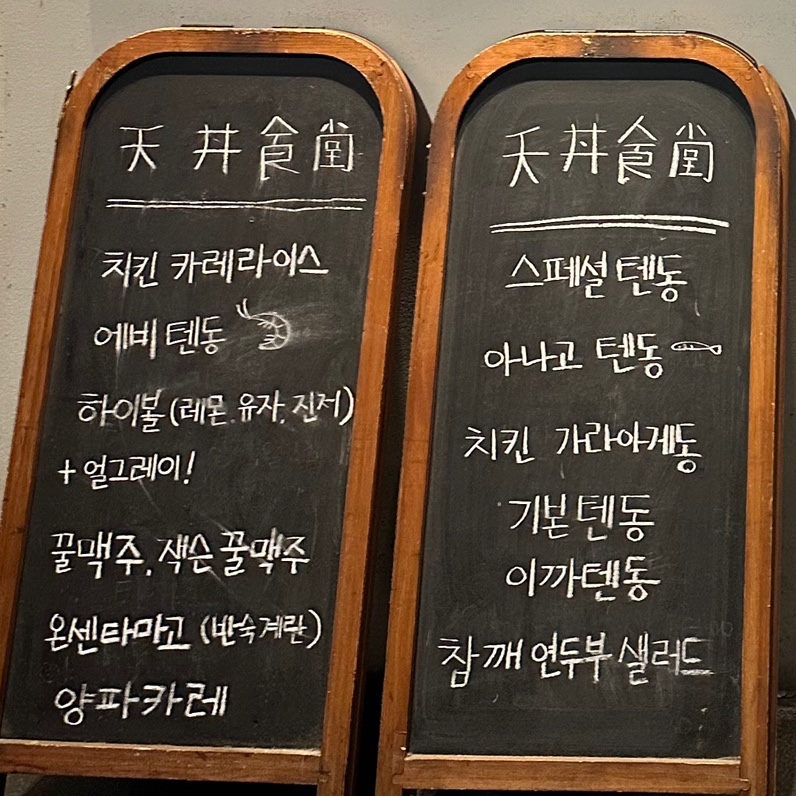 天丼食堂
치킨 카레라이스
에비 텐동
하이볼 (레몬, 유자, 진저)
+ 얼그레이!
꿀맥주, 잭슨 꿀맥주
온센타마고 (반숙계란)
양파카레
天丼食堂
스페셜 텐동
아나고 텐동
치킨 가라아게동
기본 텐동
이까텐동
참깨 연두부 샐러드